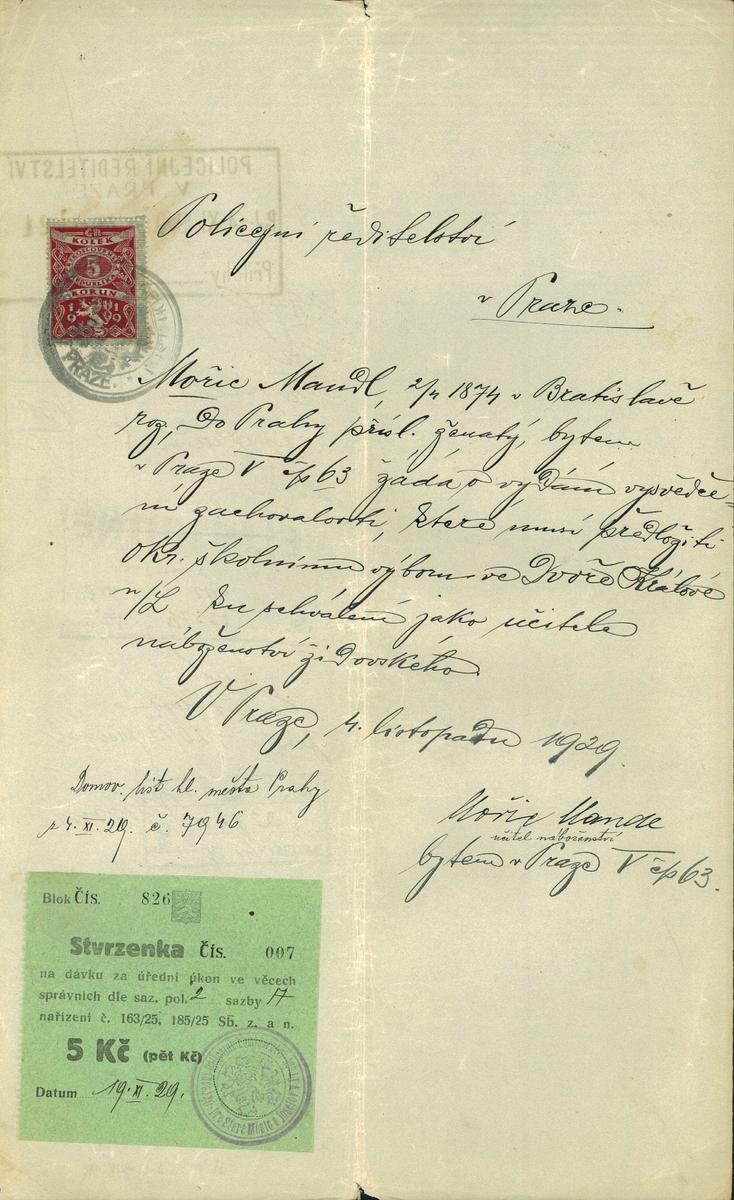 Policejní ředitelství
v Praze.
ČR
KOLEK
5
KORUN
1919
PRAZE.
Mořic Mandl, 2/4 1874 v Bratislavě
roz., do Prahy přísl. ženatý, bytem
v Praze V čp 63 žádá o vydání vysvědče-
ní zachovalosti, které musí předložiti
okr. školnímu výboru ve Dvoře Králové
n/L ku schválení jako učitele
náboženství židovského.
V Praze, 4. listopadu 1929.
Domov. list hl. města Prahy
z 4. XI. 29. č. 7946
Mořic Mandl
učitel náboženství
bytem v Praze V čp 63.
Blok Čís. 826
Stvrzenka Čís. 007
na dávku za úřední úkon ve věcech
správních dle saz. pol. 2 sazby A
nařízení č. 163/25, 185/25 Sb. z. a n.
5 Kč (pět Kč)
Datum 19. XI. 29.
POLICEJNÍ ŘEDITELSTVÍ
V PRAZE